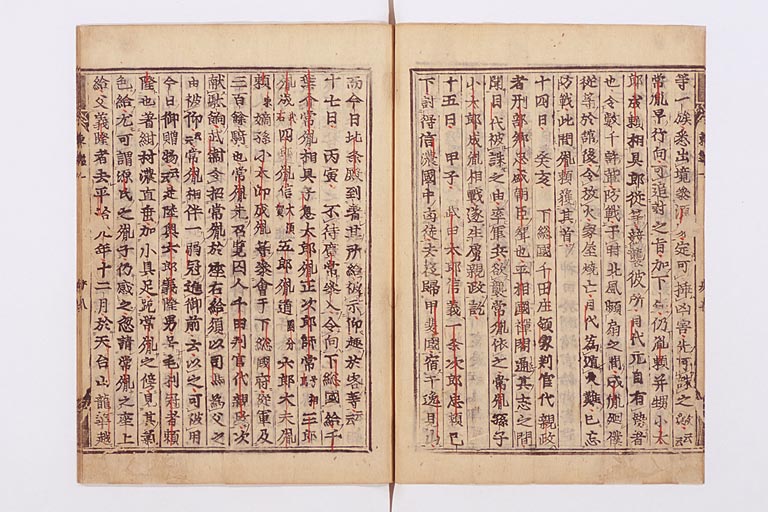 等一族悉出境参源家定可挿凶害先可誅之歟云云
常胤早行向可追討之旨加下知仍胤頼并甥小太
郎成胤相具郎従等競襲彼所目代元自有勢者
也令数十許輩防戦于時北風頻扇之間成胤廻僕
従等於舘後令放火家屋焼亡目代為遁火難已忘
防戦此間胤頼獲其首
十四日 癸亥 下総國千田庄領家判官代親政
者刑部卿忠盛朝臣聟也平相國禅閤通其志之間
聞目代被誅之由率軍兵欲襲常胤依之常胤孫子
小太郎成胤相戦遂生虜親政訖
十五日 甲子 武田太郎信義一条次郎忠頼已
下討得信濃國中凶徒去夜帰甲斐國宿于逸見山
而今日北条殿到着其所給被示仰趣於客等云云
十七日 丙寅 不待廣常参入令向下総國給千
葉介常胤相具子息太郎胤正次郎師常号相馬三郎
胤成武石四郎胤信大須賀五郎胤道國分六郎大夫胤
頼東嫡孫小太郎成胤等参会于下総國府従軍及
三百餘騎也常胤先召覧囚人千田判官代親政次
献駄餉武衛令招常胤於座右給須以司馬為父之
由被仰云云常胤相伴一弱冠進御前云以之可被用
今日御贈物云云是陸奥六郎義隆男号毛利冠者頼
隆也著紺村濃直垂加小具足跪常胤之傍見其氣
色給尤可謂源氏之胤子仍感之忽請常胤之座上
給父義隆者去平治元年十二月於天台山龍華越